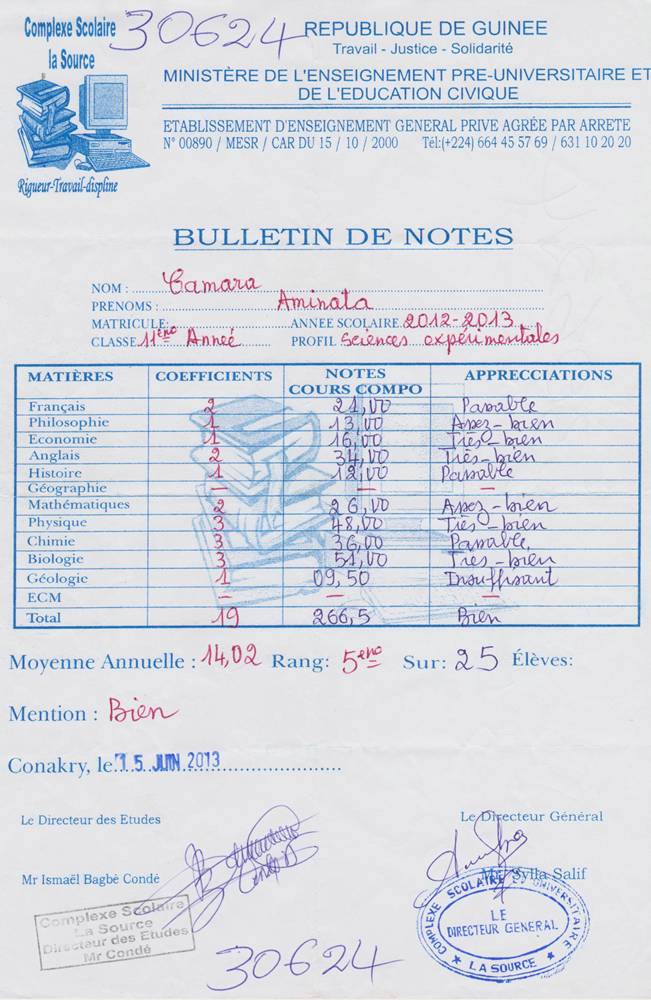 Complexe Scolaire
la Source
Rigueur-Travail-displine
30624
REPUBLIQUE DE GUINEE
Travail - Justice - Solidarité
MINISTÈRE DE L'ENSEIGNEMENT PRE-UNIVERSITAIRE ET
DE L'EDUCATION CIVIQUE
ETABLISSEMENT D'ENSEIGNEMENT GENERAL PRIVE AGRÉE PAR ARRETE
N° 00890 / MESR / CAR DU 15 / 10 / 2000 Tél:(+224) 664 45 57 69 / 631 10 20 20
BULLETIN DE NOTES
NOM : Camara
PRENOMS : Aminata
MATRICULE: ANNEE SCOLAIRE 2012-2013
CLASSE 11ème Anneé PROFIL Sciences expérimentales
MATIÈRES COEFFICIENTS NOTES COURS COMPO APPRECCIATIONS
Français 2 21,00 Passable
Philosophie 1 13,00 Assez-bien
Economie 1 16,00 Très-bien
Anglais 2 34,00 Très-bien
Histoire 1 12,00 Passable
Géographie — — —
Mathématiques 2 26,00 Assez-bien
Physique 3 48,00 Très-bien
Chimie 3 36,00 Passable,
Biologie 3 51,00 Très-bien
Géologie 1 09,50 Insuffisant
ECM — — —
Total 19 266,5 Bien
Moyenne Annuelle : 14,02 Rang: 5ème Sur: 25 Élèves:
Mention : Bien
Conakry, le 15 JUIN 2013
Le Directeur des Etudes Le Directeur Général
Mr Ismaël Bagbè Condé Mr Sylla Salif
Complexe Scolaire
La Source
Directeur des Etudes
Mr Condé
COMPLEXE SCOLAIRE UNIVERSITAIRE
LE
DIRECTEUR GENERAL
LA SOURCE
30624